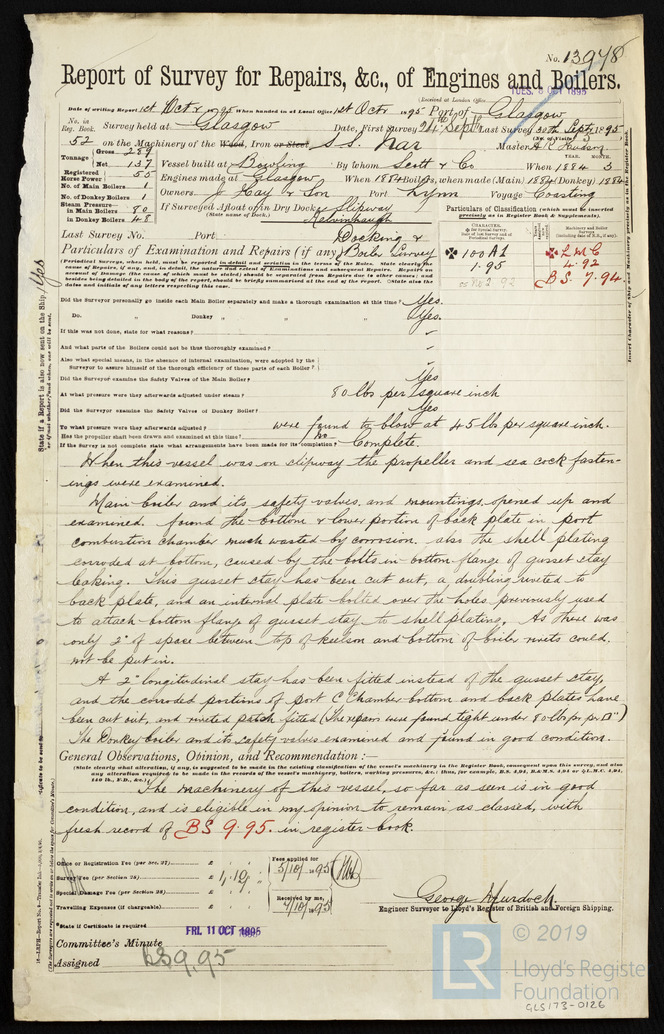 No. 13978
Report of Survey for Repairs, &c., of Engines and Boilers.
TUES. 8 OCT 1895
(Received at London Office
Date of writing Report 1st Octr 1895 When handed in at Local Office 1st Octr 1895 Port of Glasgow
No. in Reg. Book. Survey held at Glasgow Date, First Survey 21st Septr Last Survey 30th Septr 1895
52 on the Machinery of the Wood, Iron or Steel S.S. Nar Master A R Hudson
Tonnage Gross 289
Net 137 Vessel built at Bowling By whom Scott & Co When 1884 3
YEAR. MONTH.
Registered Horse Power 55 Engines made at Glasgow When 1884 Boilers, when made (Main) 1884 (Donkey) 1884
No. of Main Boilers 1 Owners J Hay & Son Port Lynn Voyage Coasting
No. of Donkey Boilers 1
Steam Pressure in Main Boilers 80 If Surveyed Afloat or in Dry Dock Slipway
in Donkey Boilers 48 (State name of Dock.) Kelvinhaugh
Particulars of Classification (which must be inserted precisely as in Register Book & Supplements).
Last Survey No. Port Docking &
Particulars of Examination and Repairs (if any) Boiler Survey
(Periodical Surveys, when held, must be reported in detail and seriatim in the terms of the Rules. State clearly the
cause of Repairs, if any, and, in detail, the nature and extent of Examinations and subsequent Repairs. Repairs on
account of Damage (the cause of which must be stated) should be separated from Repairs due to other causes; and
besides being detailed in the body of the report, should be briefly summarised at the end of the report. State also the
dates and initials of any letters respecting this case.
100 A1
1.95
SS No 2 92
LMC
4.92
BS. 7.94
State if a Report is also now sent on the Ship. Yes
or if not, whether, and when, one will be sent.
Insert Character of Ship and Machinery precisely as in the Register Book.
Did the Surveyor personally go inside each Main Boiler separately and make a thorough examination at this time? Yes.
Do. Donkey " " " Yes.
If this was not done, state for what reasons? -
And what parts of the Boilers could not be thoroughly examined? -
Also what special means, in the absence of internal examination, were adopted by the
Surveyor to assure himself of the thorough efficiency of those parts of each Boiler? -
Did the Surveyor examine the Safety Valves of the Main Boiler? Yes
At what pressure were they afterwards adjusted under steam? 80 lbs per square inch
Did the Surveyor examine the Safety Valves of Donkey Boiler? Yes
To what pressure were they afterwards adjusted? were found to blow at 45 lbs per square inch.
Has the propeller shaft been drawn and examined at this time? no
If the Survey is not complete state what arrangements have been made for its completion? Complete
When this vessel was on slipway the propeller and sea cock fasten-
ings were examined.
Main boiler and its safety valves and mountings opened up and
examined. found the bottom & lower portion of back plate in port
combustion chamber much wasted by corrosion. also the shell plating
corroded at bottom, caused by the bolts in bottom flange of gusset stay
leaking. This gusset stay has been cut out, a doubling riveted to
back plate, and an internal plate bolted over the holes previously used
to attach bottom flange of gusset stay to shell plating. As there was
only 2" of space between top of keelson and bottom of boiler rivets could
not be put in.
A 2" longitudinal stay has been fitted instead of the gusset stay,
and the corroded portions of port C Chamber bottom and back plates have
been cut out, and riveted patch fitted (The repairs were found tight under 80 lbs pr pr □")
The Donkey boiler and its safety valves examined and found in good condition.
General Observations, Opinion, and Recommendation :—
(State clearly what alteration, if any, is suggested to be made in the existing classification of the vessel's machinery in the Register Book, consequent upon this survey, and also
any alteration required to be made in the records of the vessel's machinery, boilers, working pressures, &c.: thus, for example, B.S. 4.94, B.&M.S. 4.94 or L.M.C. 4.94,
140 lb., F.D., &c.)
The machinery of this vessel, so far as seen is in good
condition, and is eligible in my opinion to remain as classed, with
fresh record of BS 9.95. in register book.
Office or Registration Fee (per Sec. 27) £
Survey Fee (per Section 28) £ 1.10
Special Damage Fee (per Section 28) £
Travelling Expenses (if chargeable) £
Fees applied for
5/10/1895
Received by me,
7/10/1895
George Murdoch.
Engineer Surveyor to Lloyd's Register of British and Foreign Shipping.
*State if Certificate is required
Committee's Minute FRI. 11 OCT 1895
Assigned BS 9.95
LR
© 2019
Lloyd's Register
Foundation
GLS173-0126